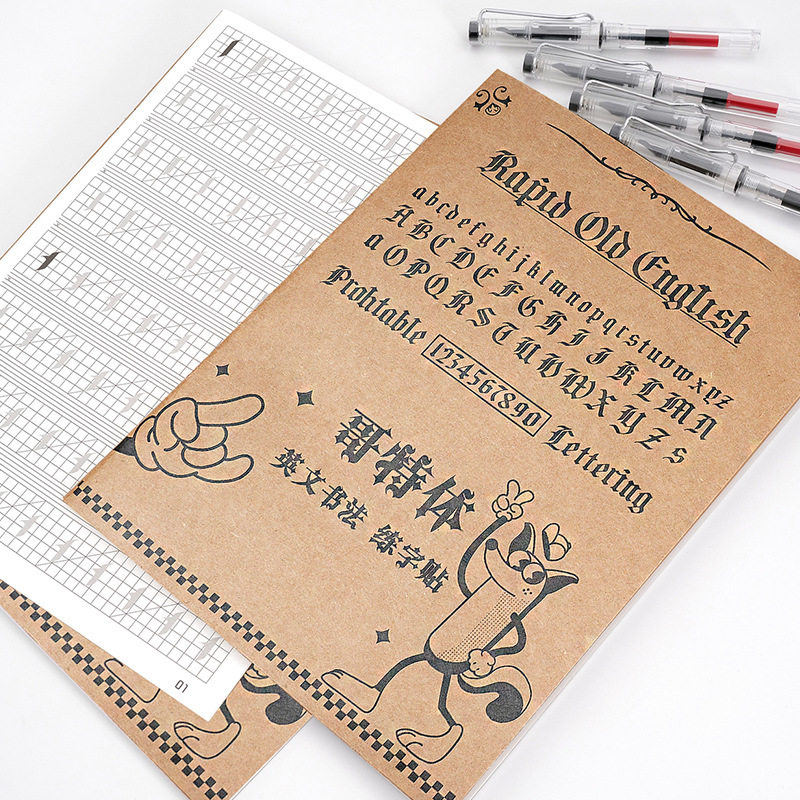 Rapid Old English
abcdefghijklmnopqrstuvwxyz
ABCDEFGHIJKLMN
a OPQRSTUVWXYZ s
Profitable 1234567890 Lettering
哥特体
英文书法 练字贴
01